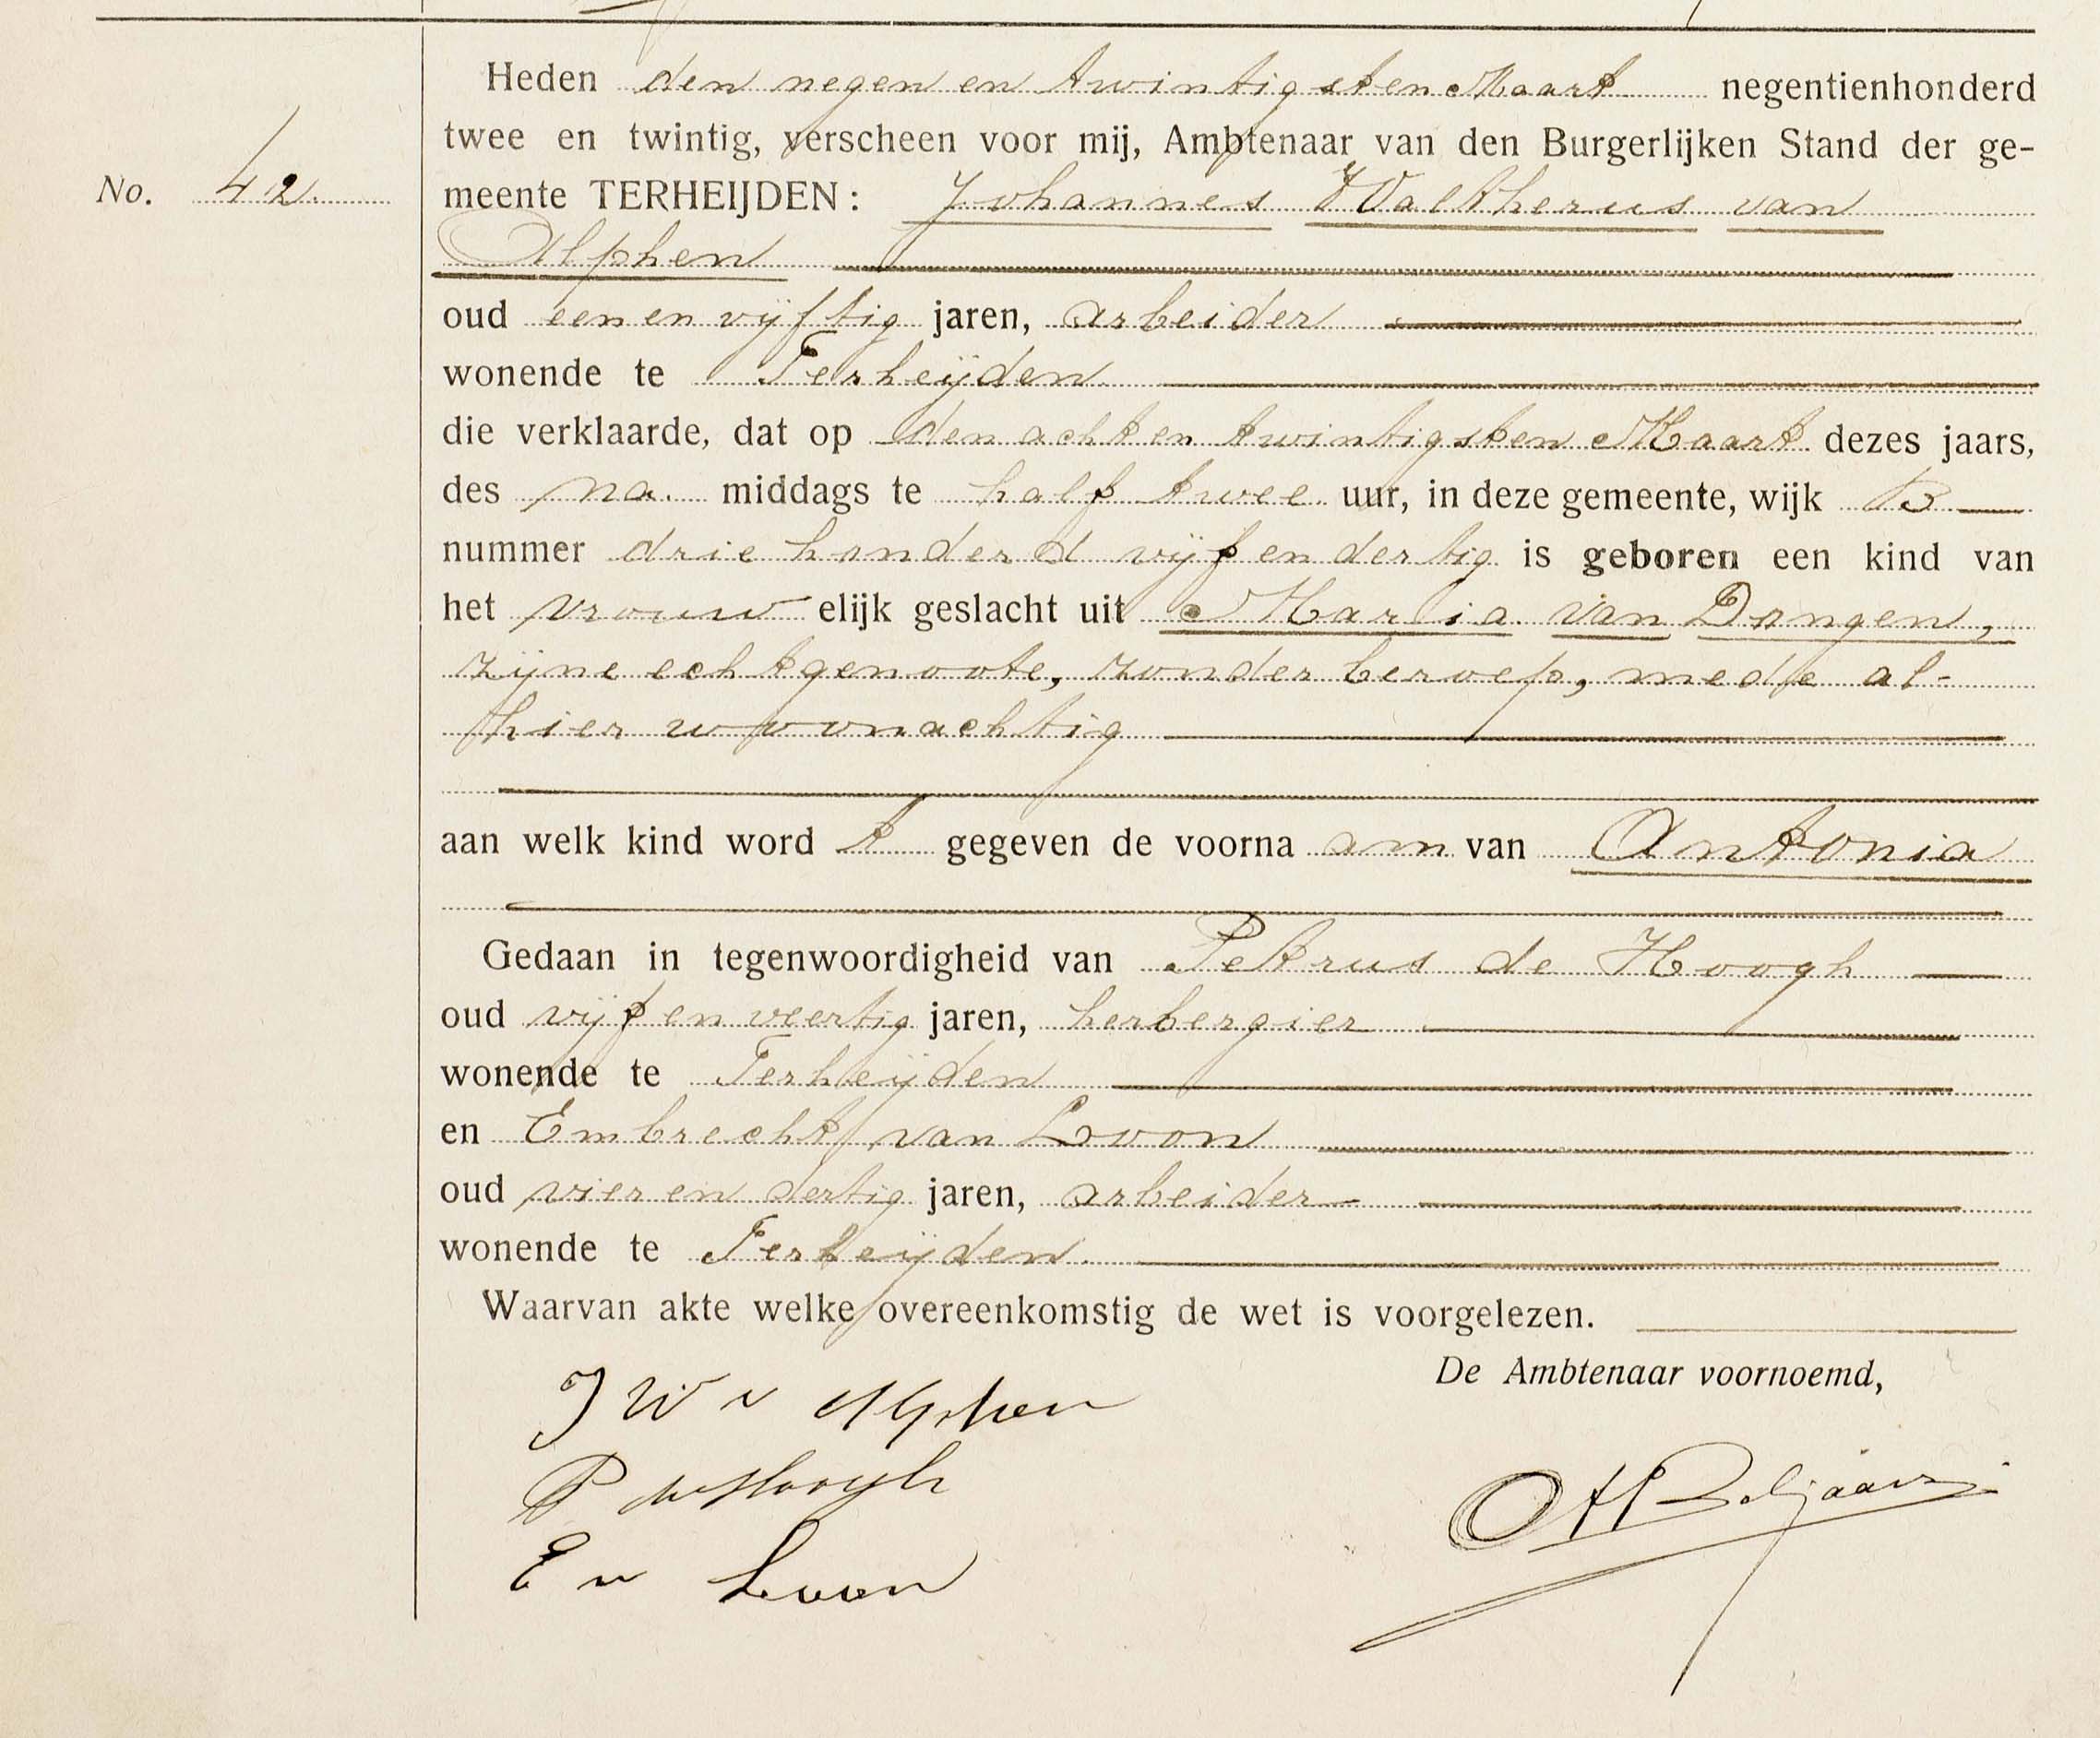 Heden den negen en twintigsten Maart negentienhonderd
twee en twintig, verscheen voor mij, Ambtenaar van den Burgerlijken Stand der ge-
No. 42. meente TERHEIJDEN: Johannes Waltherus van
Alphen
oud een en vijftig jaren, arbeider
wonende te Terheijden
die verklaarde, dat op den acht en twintigsten Maart dezes jaars,
des na middags te half twee uur, in deze gemeente, wijk B
nummer drie honderd vijf en dertig is geboren een kind van
het vrouw elijk geslacht uit Maria van Dongen,
zijne echtgenoote, zonder beroep, mede al-
hier woonachtig
aan welk kind word t gegeven de voorna am van Antonia
Gedaan in tegenwoordigheid van Petrus de Hoogh
oud vijf en veertig jaren, herbergier
wonende te Terheijden
en Embrecht van Loon
oud vier en dertig jaren, arbeider
wonende te Terheijden.
Waarvan akte welke overeenkomstig de wet is voorgelezen.
De Ambtenaar voornoemd,
J W v Alphen
P de Hoogh
E v Loon